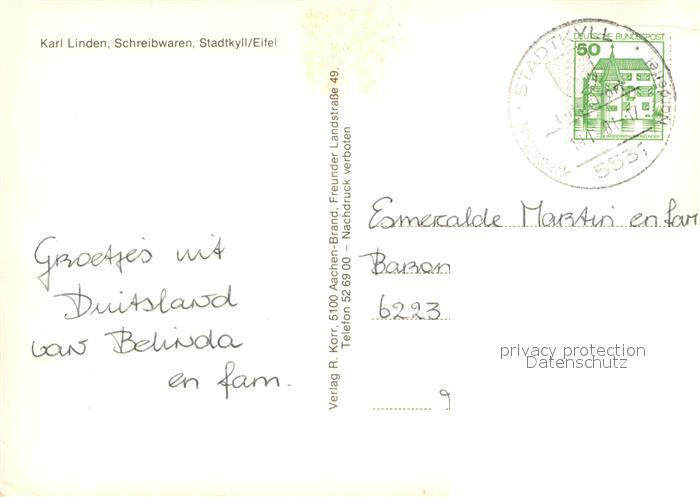 Karl Linden, Schreibwaren, Stadtkyll/Eifel
DEUTSCHE BUNDESPOST
50
STADTKYLL
5531
Verlag R. Korr, 5100 Aachen-Brand, Freunder Landstraße 49,
Telefon 52 69 00 – Nachdruck verboten
Groetjes uit
Duitsland
van Belinda
en fam.
Esmeralde Martin en fam
Baron
6223
privacy protection
Datenschutz